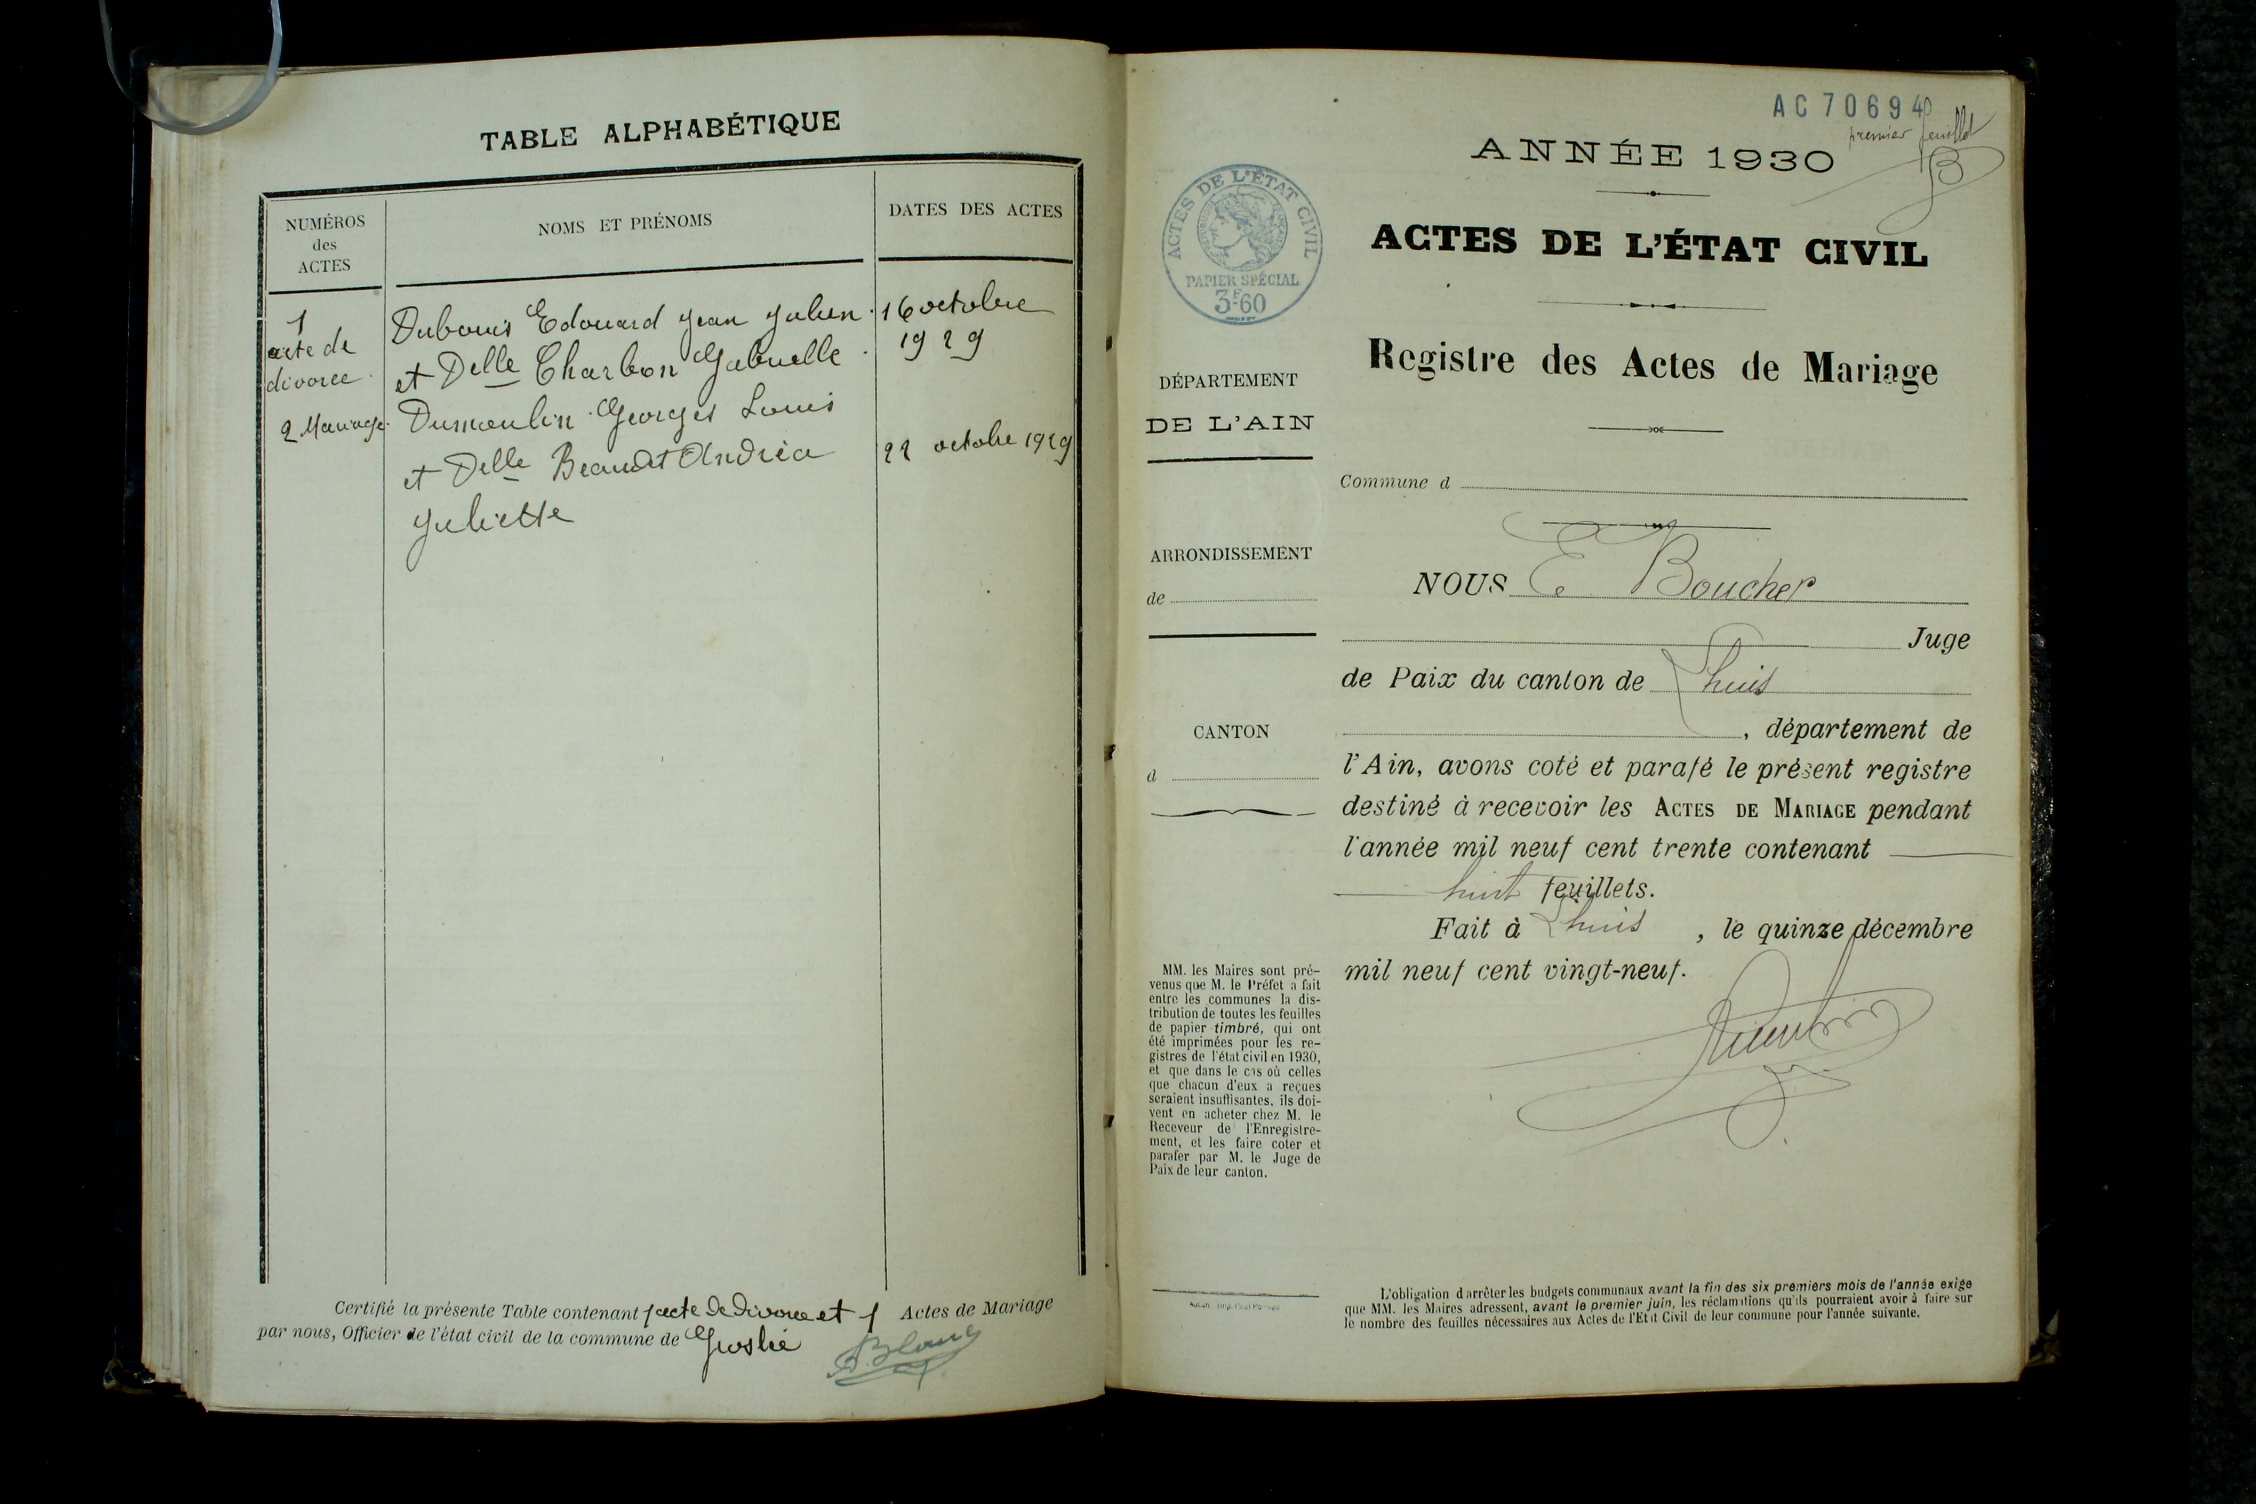 TABLE ALPHABÉTIQUE
NUMÉROS
des
ACTES
NOMS ET PRÉNOMS
DATES DES ACTES
1
acte de
divorce
Dubouis Edouard Jean Julien
et Delle Charbon Gabrielle
16 octobre
1929
2 Mariage
Dumoulin Georges Louis
et Delle Beaudet Andréa
Juliette
22 octobre 1929
Certifié la présente Table contenant 1 acte de divorce et 1 Actes de Mariage
par nous, Officier de l'état civil de la commune de Groslée
Blanc
AC 70694
premier feuillet
ANNÉE 1930
ACTES DE L'ÉTAT CIVIL
PAPIER SPÉCIAL
3F60
ACTES DE L'ÉTAT CIVIL
Registre des Actes de Mariage
DÉPARTEMENT
DE L'AIN
Commune d
ARRONDISSEMENT
de
NOUS E Boucher
Juge
de Paix du canton de Lhuis
CANTON
d
, département de
l'Ain, avons coté et parafé le présent registre
destiné à recevoir les ACTES DE MARIAGE pendant
l'année mil neuf cent trente contenant
huit feuillets.
Fait à Lhuis, le quinze décembre
mil neuf cent vingt-neuf.
MM. les Maires sont pré-
venus que M. le Préfet a fait
entre les communes la dis-
tribution de toutes les feuilles
de papier timbré, qui ont
été imprimées pour les re-
gistres de l'état civil en 1930,
et que dans le cas où celles
que chacun d'eux a reçues
seraient insuffisantes, ils doi-
vent en acheter chez M. le
Receveur de l'Enregistre-
ment, et les faire coter et
parafer par M. le Juge de
Paix de leur canton.
L'obligation d'arrêter les budgets communaux avant la fin des six premiers mois de l'année exige
que MM. les Maires adressent, avant le premier juin, les réclamations qu'ils pourraient avoir à faire sur
le nombre des feuilles nécessaires aux Actes de l'Etat Civil de leur commune pour l'année suivante.